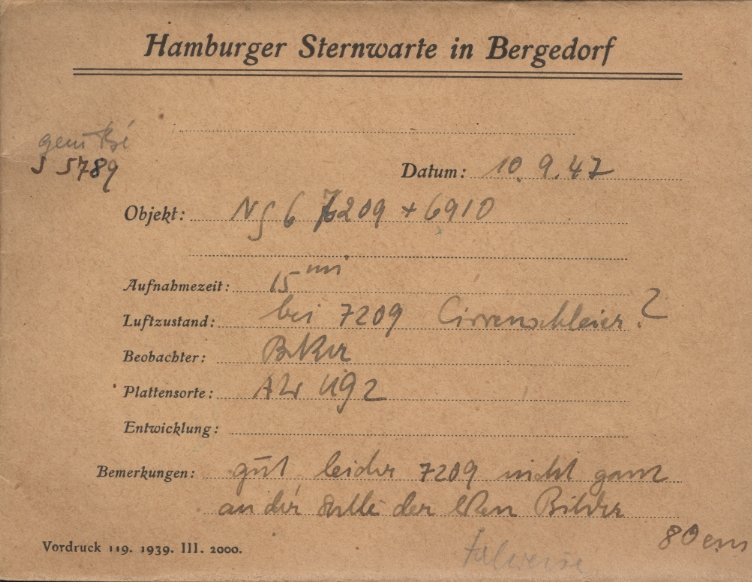 Hamburger Sternwarte in Bergedorf
S 5789
Datum: 10.9.47
Objekt: NGC 7209 + 6910
Aufnahmezeit: 15 min
Luftzustand: bei 7209 Cirrenschleier?
Beobachter:
Plattensorte: 492
Entwicklung:
Bemerkungen: gut leider 7209 nicht ganz
an der Stelle der Bilder
Vordruck 119. 1939. III. 2000.